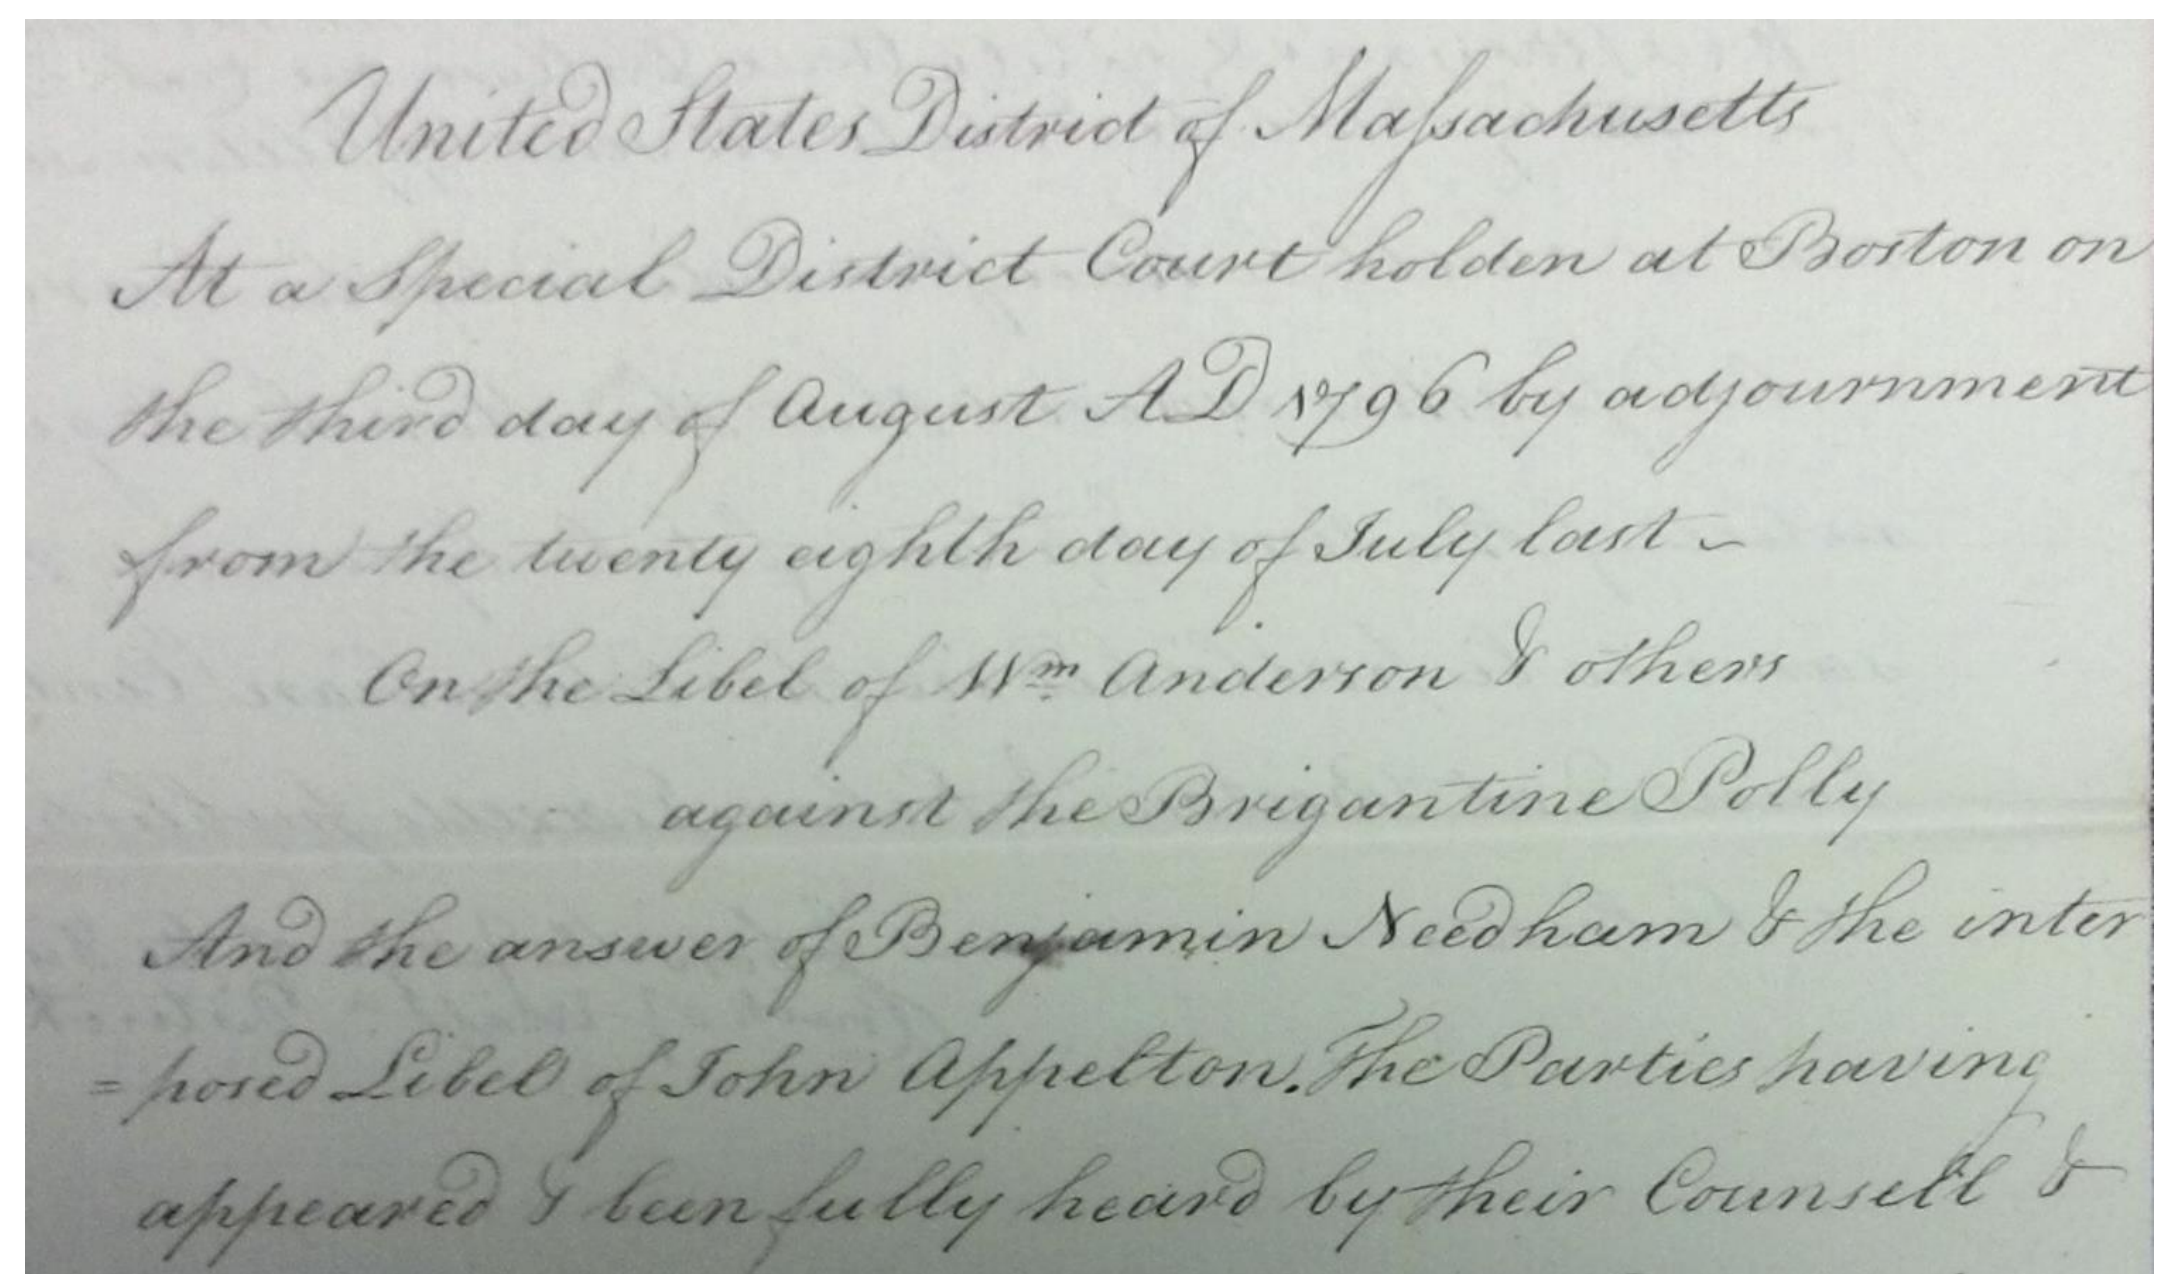 United States District of Maſsachusetts
At a Special District Court holden at Boston on
the third day of August AD 1796 by adjournment
from the twenty eighth day of July last ~
On the Libel of Wm Anderson & others
against the Brigantine Polly
And the answer of Benjamin Needham & the inter
=posed Libel of John Appelton. The Parties having
appeared & been fully heard by their Counsell &